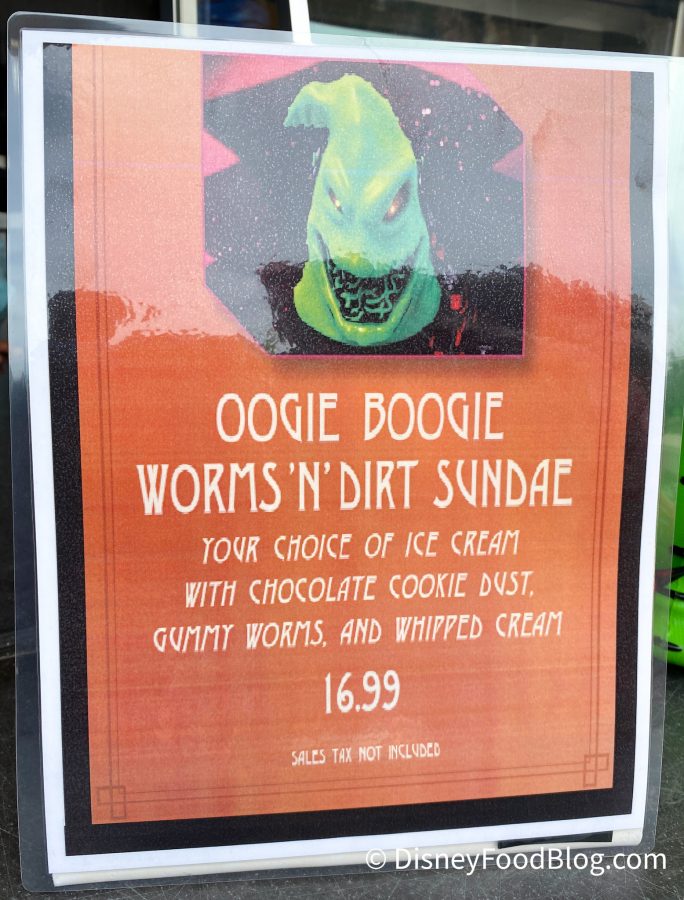 OOGIE BOOGIE
WORMS 'N' DIRT SUNDAE
YOUR CHOICE OF ICE CREAM
WITH CHOCOLATE COOKIE DUST,
GUMMY WORMS, AND WHIPPED CREAM
16.99
SALES TAX NOT INCLUDED
© DisneyFoodBlog.com